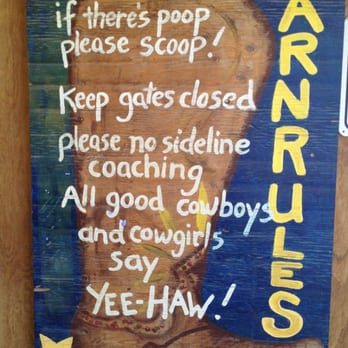 if there's poop
please scoop!
Keep gates closed
please no sideline
coaching
All good cowboys
and cowgirls
say
YEE-HAW!
ARNRULES